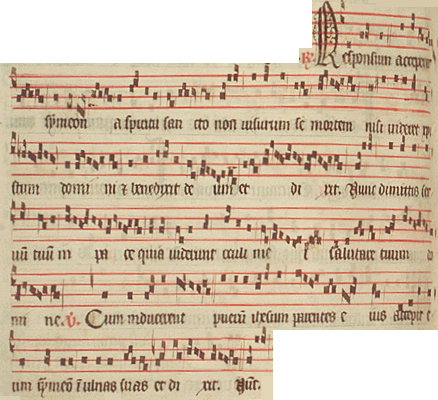 R. Responsum acceperat
symeon a spiritu san cto non visurum se mortem nisi videret xpi
stum domi ni & benedixit de um et di xit. Nunc dimittis ser
uum tuum in pa ce quia viderunt oculi me i salutare tuum do
mi ne. V. Cum inducerent puerum ihesum parentes e ius accepit e
um symeon in ulnas suas et di xit. Nunc.